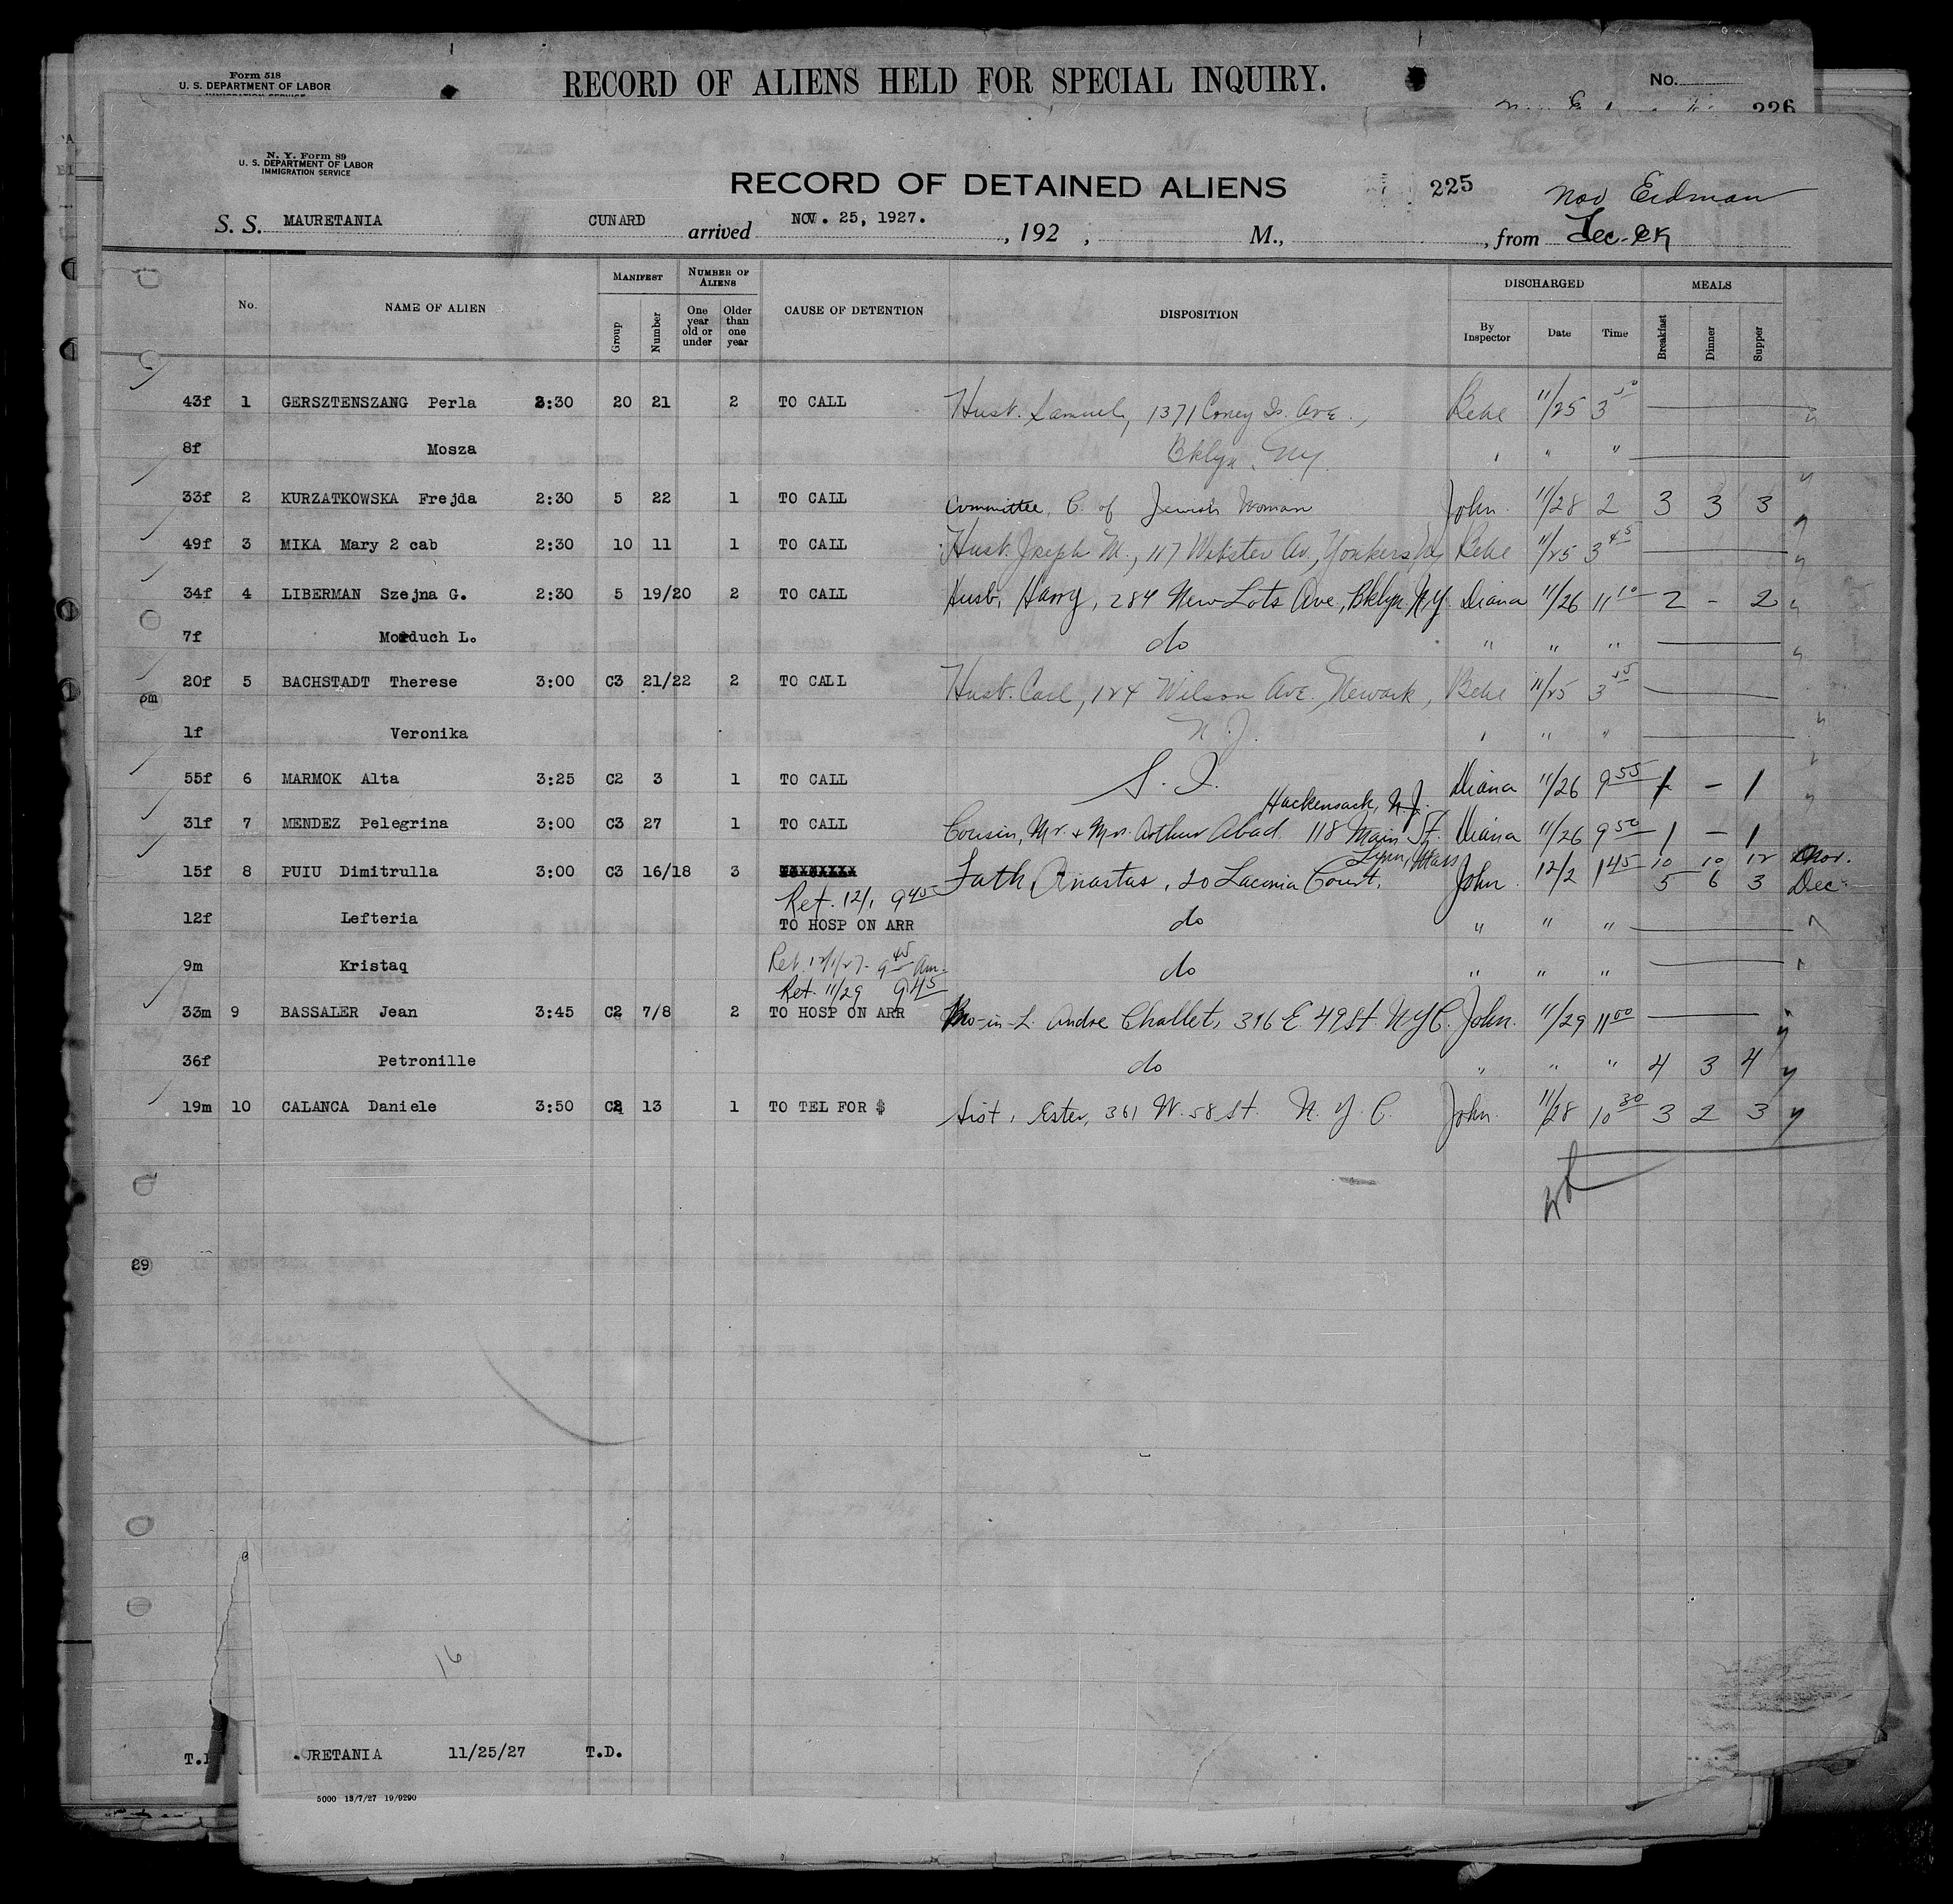 Form 518
U. S. DEPARTMENT OF LABOR
RECORD OF ALIENS HELD FOR SPECIAL INQUIRY.
No.
226
N. Y. Form 89
U. S. DEPARTMENT OF LABOR
IMMIGRATION SERVICE
RECORD OF DETAINED ALIENS
225
Nov Eidman
S. S. MAURETANIA CUNARD arrived NOV. 25, 1927. , 192 , M., , from Dec-
No. NAME OF ALIEN MANIFEST Group Number NUMBER OF ALIENS One year old or under Older than one year CAUSE OF DETENTION DISPOSITION DISCHARGED By Inspector Date Time MEALS Breakfast Dinner Supper
43f 1 GERSZTENSZANG Perla 2:30 20 21 2 TO CALL Husb. Samuel, 1371 Coney Is. Ave., Bebe 11/25 3 50
8f Mosza Bklyn, NY. " " "
33f 2 KURZATKOWSKA Frejda 2:30 5 22 1 TO CALL Committee, C. of Jewish Woman John. 11/28 2 3 3 3
49f 3 MIKA Mary 2 cab 2:30 10 11 1 TO CALL Husb. Joseph M., 117 Webster Av, Yonkers NY Bebe 11/25 3 45
34f 4 LIBERMAN Szejna G. 2:30 5 19/20 2 TO CALL Husb, Harry, 284 New Lots Ave, Bklyn N.Y. Diana 11/26 11 10 2 - 2
7f Morduch L. do " " "
20f 5 BACHSTADT Therese 3:00 C3 21/22 2 TO CALL Husb. Carl, 124 Wilson Ave. Newark, Bebe 11/25 3
pm
1f Veronika N.J. " " "
55f 6 MARMOK Alta 3:25 C2 3 1 TO CALL S. I. Diana 11/26 9 55 1 - 1
Hackensack, N.J.
31f 7 MENDEZ Pelegrina 3:00 C3 27 1 TO CALL Cousin, Mr. & Mrs. Arthur Abad. 118 Main St. Diana 11/26 9 50 1 - 1
Lynn, Mass
15f 8 PUIU Dimitrulla 3:00 C3 16/18 3 Fath, Anastas, 20 Laconia Court, John. 12/2 1 45 10 10 12 Nov.
5 6 3 Dec
Ret. 12/1 9 40
12f Lefteria TO HOSP ON ARR do " " "
9m Kristaq Ret. 12/1/27- 9 45 Am. do " " "
Ret. 11/29 9 45
33m 9 BASSALER Jean 3:45 C2 7/8 2 TO HOSP ON ARR Bro-in-L. Andre Challet, 316 E. 49 St. N.Y.C. John. 11/29 11 00
36f Petronille do " " " 4 3 4
19m 10 CALANCA Daniele 3:50 C2 13 1 TO TEL FOR $ Sist, Ester, 361 W. 58 St. N.Y.C. John. 11/28 10 30 3 2 3
29
16
URETANIA 11/25/27 T.D.
5000 13/7/27 19/9290